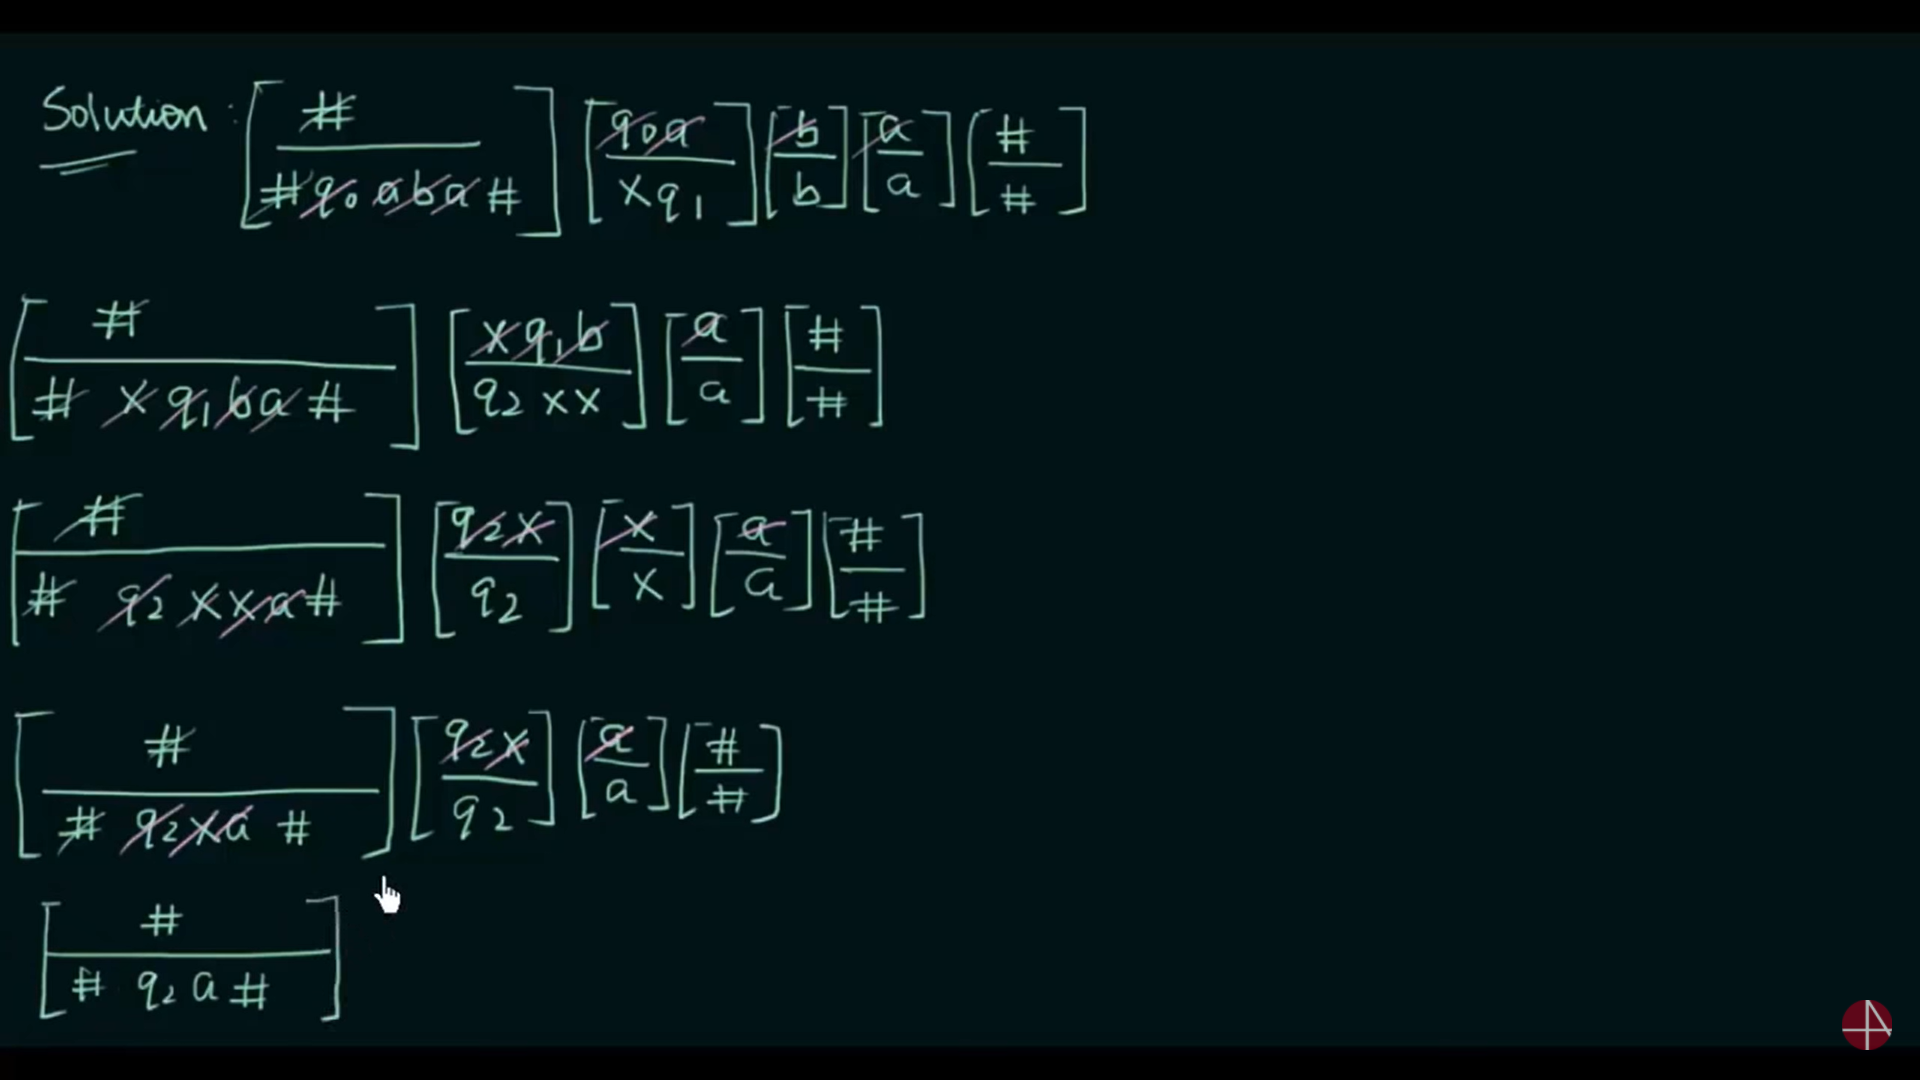 Solution : [ # / # q0 a b a # ] [ q0 a / x q1 ] [ b / b ] [ a / a ] [ # / # ]
[ # / # x q1 b a # ] [ x q1 b / q2 x x ] [ a / a ] [ # / # ]
[ # / # q2 x x a # ] [ q2 x / q2 ] [ x / x ] [ a / a ] [ # / # ]
[ # / # q2 x a # ] [ q2 x / q2 ] [ a / a ] [ # / # ]
[ # / # q2 a # ]